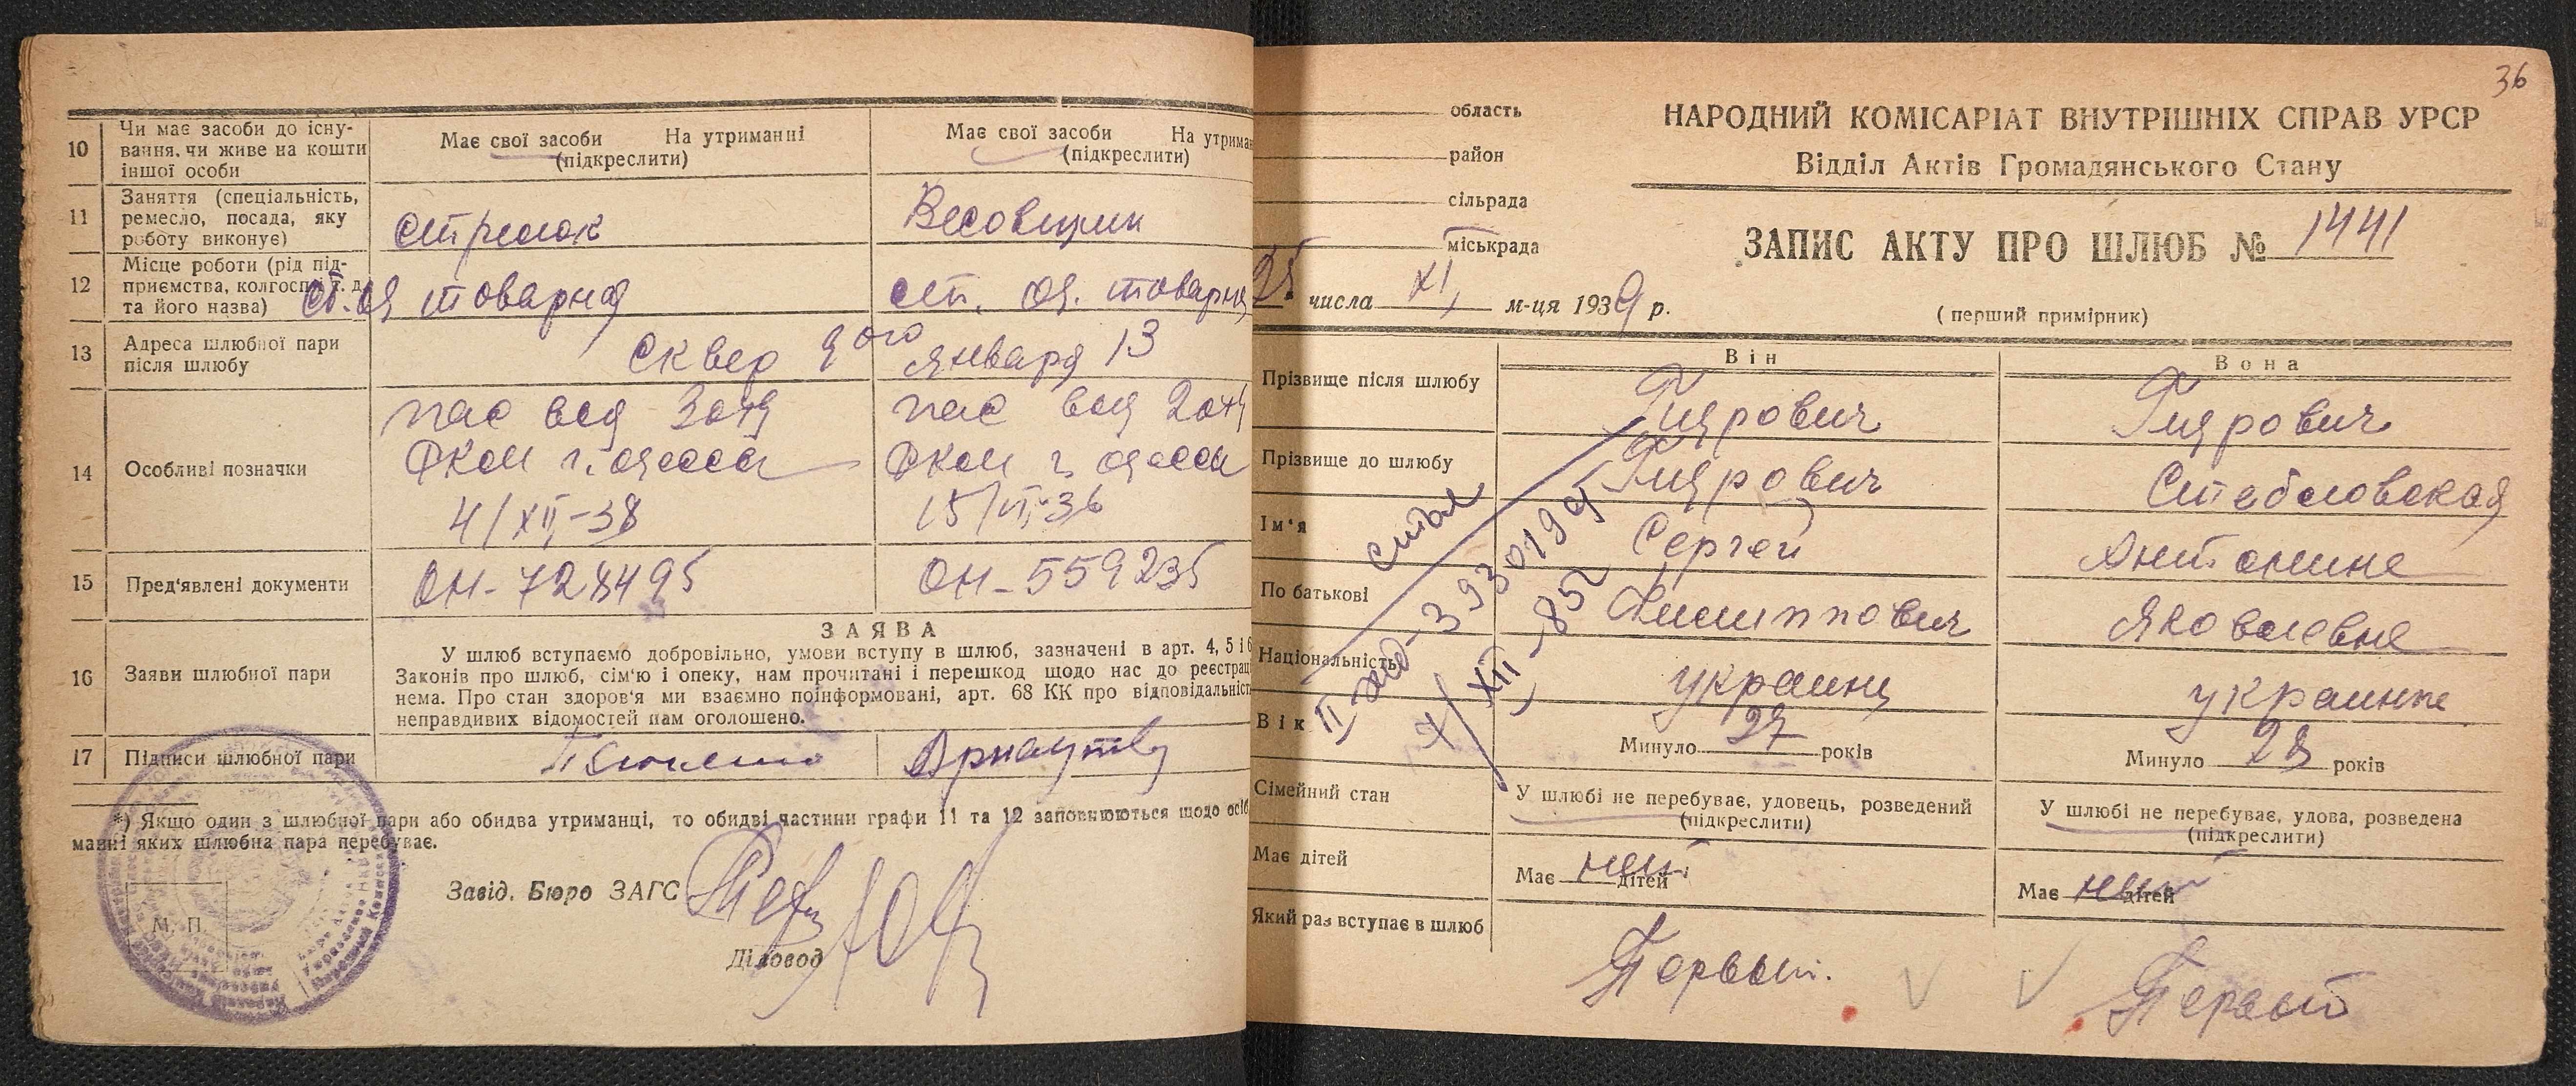 10 Чи має засоби до існу-
вання, чи живе на кошти
іншої особи
Має свої засоби На утриманні
(підкреслити)
Має свої засоби На утриман
(підкреслити)
11 Заняття (спеціальність,
ремесло, посада, яку
роботу виконує)
стрелок
Весовщик
12 Місце роботи (рід під-
приємства, колгоспі т. д.
та його назва)
ст. Од товарная
ст. Од. товарна
13 Адреса шлюбної пари
після шлюбу
Сквер 9ого января 13
14 Особливі позначки
пас выд 3отд
РКМ г. Одесса
4/XII-38
пас выд 2отд
РКМ г. Одесса
15/VI-36
15 Пред'явлені документи
ОН-728495
ОН-559235
16 Заяви шлюбної пари
ЗАЯВА
У шлюб вступаємо добровільно, умови вступу в шлюб, зазначені в арт. 4, 5 і 6
Законів про шлюб, сім'ю і опеку, нам прочитані і перешкод щодо нас до реєстрац
нема. Про стан здоров'я ми взаємно поінформовані, арт. 68 КК про відповідальніст
неправдивих відомостей нам оголошено.
17 Підписи шлюбної пари
*) Якщо один з шлюбної пари або обидва утриманці, то обидві частини графи 11 та 12 заповнюються щодо осіб
манні яких шлюбна пара перебуває.
Завід. Бюро ЗАГС
Діловод
М. П.
36
область
район
сільрада
міськрада
25 числа XI м-ця 1939 р.
НАРОДНИЙ КОМІСАРІАТ ВНУТРІШНІХ СПРАВ УРСР
Відділ Актів Громадянського Стану
ЗАПИС АКТУ ПРО ШЛЮБ № 1441
(перший примірник)
Він
Вона
Прізвище після шлюбу
Гидрович
Гидрович
Прізвище до шлюбу
Гидрович
Стебловская
Ім'я
Сергей
Антонина
По батькові
Филиппович
Яковлевна
Національність
украинец
украинка
Вік
Минуло 27 років
Минуло 28 років
Сімейний стан
У шлюбі не перебуває, удовець, розведений
(підкреслити)
У шлюбі не перебуває, удова, розведена
(підкреслити)
Має дітей
Має нет дітей
Має нет дітей
Який раз вступає в шлюб
Первый.
Первый